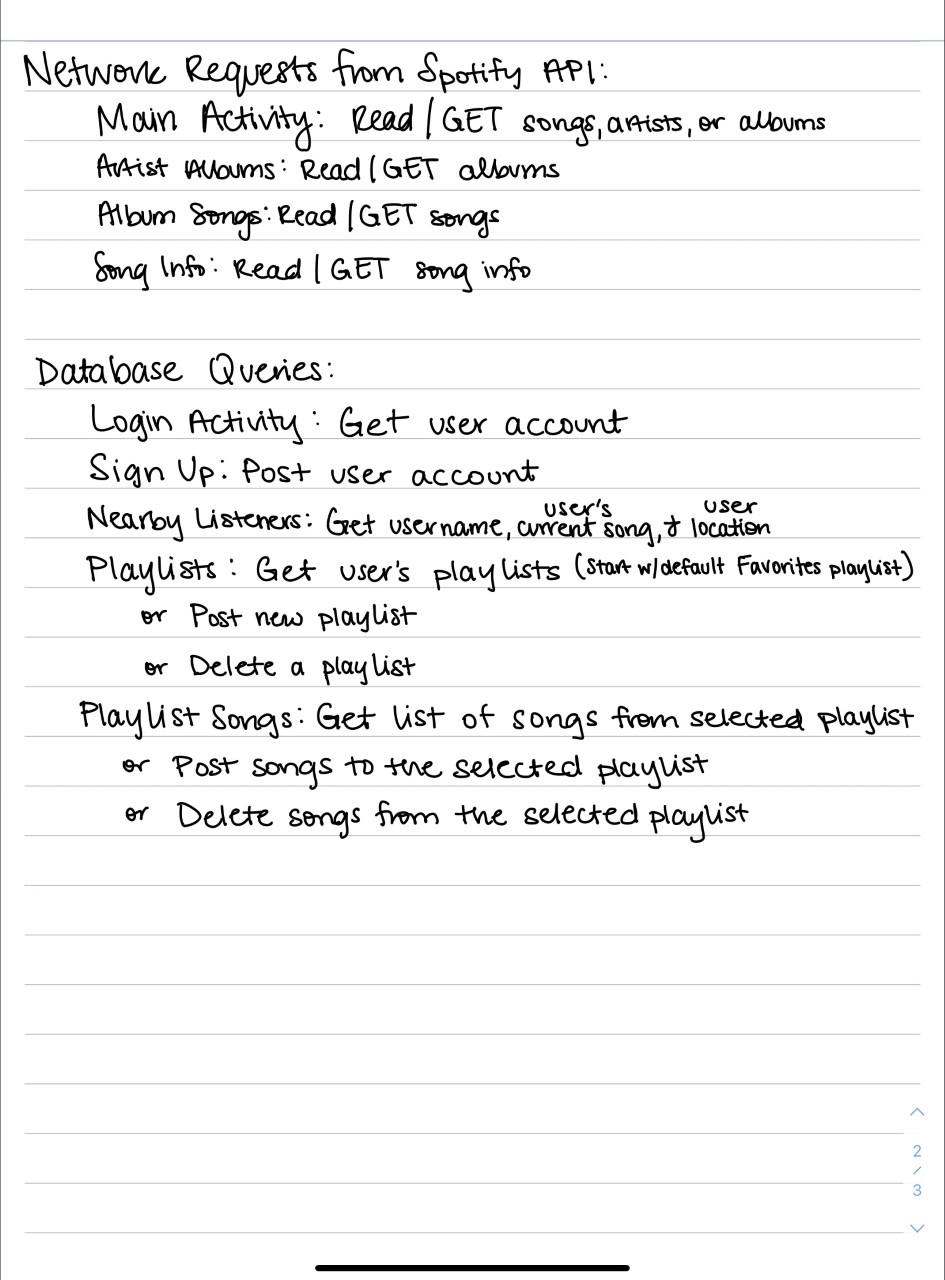 Network Requests from Spotify API:
Main Activity: Read / GET songs, artists, or albums
Artist Albums: Read / GET albums
Album Songs: Read / GET songs
Song Info: Read / GET song info
Database Queries:
Login Activity: Get user account
Sign Up: Post user account
Nearby Listeners: Get username, user's current song, & user location
Playlists: Get user's playlists (start w/default Favorites playlist)
or Post new playlist
or Delete a playlist
Playlist Songs: Get list of songs from selected playlist
or Post songs to the selected playlist
or Delete songs from the selected playlist
2
/
3